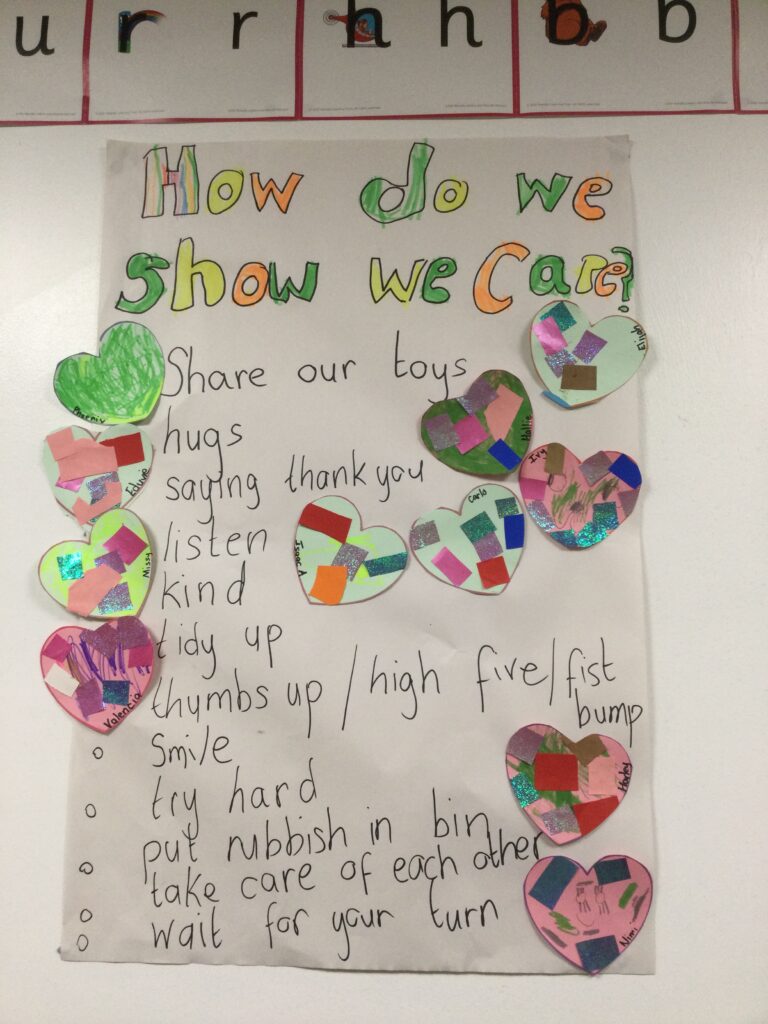 u r r h h b b
How do we
show we Care?
Share our toys
Elijah
Phoenix
hugs
Hallie
saying thank you
Ivy
listen
Isaac A
Carlo
Missy
kind
tidy up
Valencia
thymbs up / high five / fist
bump
Smile
try hard
Harley
put rubbish in bin
take care of each other
wait for your turn
Nimi